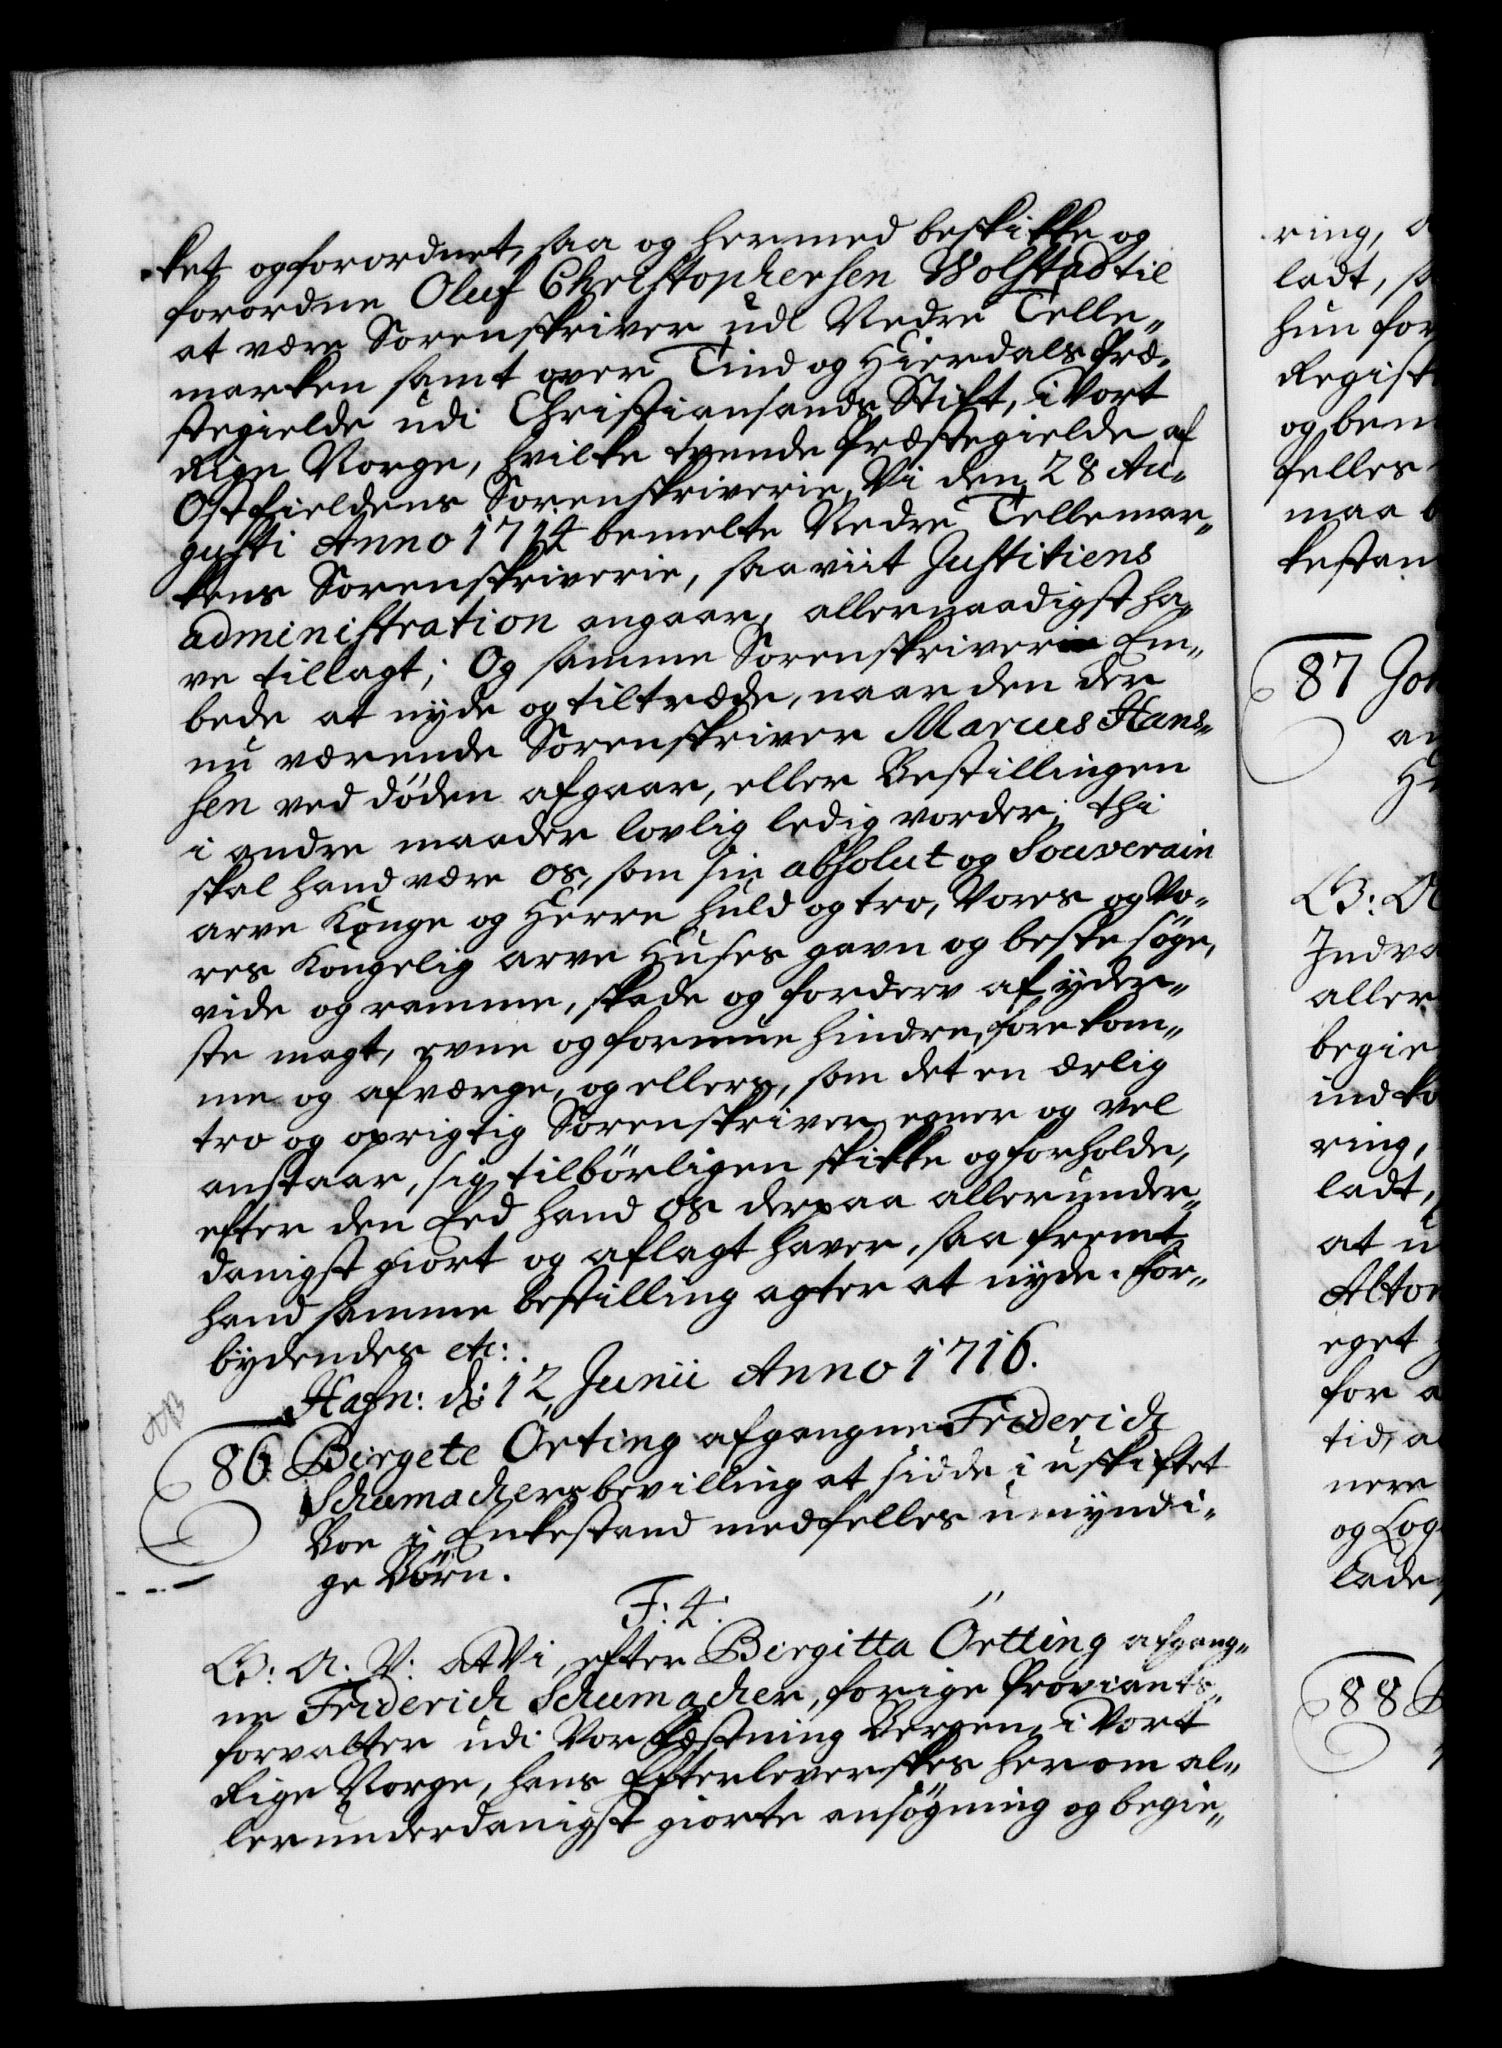 ket og forordnet, saa og hermed beskikke og
forordne Oluf Christophersen Wolstad til
at være Sorenskriver udl Nedre Telle„
marken samt over Tind og Hierdals Præ„
stegielde udi Christiansands Stift, i Vort
Rige Norge, hvilke tvende Præstegielde af
Ostfieldens Sorenskriverie, Vi den 28 Au„
gusti Anno 1714 bemelte Nedre Tellemar„
kens Sorenskriverie, saaviit Justitiens
administration angaar, allernaadigst ha„
ve tillagt; Og samme Sorenskriverie Em„
bede at nyde og tiltræde, naar den der
nu værende Sorenskriver Marcus Hans„
sen ved döden afgaar, eller Bestillingen
i andre maader lovlig ledig vorder; thi
skal hand være os, som sin absolut og Souverain
arve Konge og Herre huld og tro, Vores og Vo„
res Kongelig arve Huses gavn og beste söge,
vide og ramme, skade og forderv af yder„
ste magt, evne og formue hindre, forekom„
me og afværge, og ellers, som det en ærlig
tro og oprigtig Sorenskriver egner og vel
anstaar, sig tilbörligen skikke og forholde,
efter den Eed hand os derpaa allerunder„
danigst giort og aflagt haver, saa fremt
hand samme bestilling agter at nyde. For„
bydendes etc:
Hafn: d: 12 Junii Anno 1716.
86 Birgete Örting afgangne Friderich
Schumachers bevilling at sidde i uskiftet
Boe i Enkestand med felles umyndi„
ge Börn.
F: 4:
G: A: V: at Vi, efter Birgitta Örtting afgang„
ne Friderich Schumacher, forige Proviants„
forvalter udi Vor Fæstning Bergen, i Vort
Rige Norge, hans Efterleverskes herom al„
lerunderdanigst giorte ansögning og begie„
ring,
ladt,
hun for
Regist
og bem
felles
maa
kestan
87
G: A
Indvo
aller
begie
indko
ring,
ladt,
at
eget
for a
tid, a
nere
og Log
lade
88